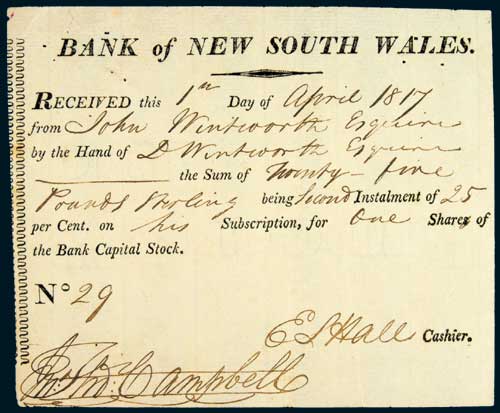 BANK of NEW SOUTH WALES.
RECEIVED this 1st Day of April 1817
from John Wentworth Esquire
by the Hand of D Wentworth Esquire
the Sum of Twenty-five
Pounds Sterling being Second Instalment of 25
per Cent. on his Subscription, for One Share of
the Bank Capital Stock.
No 29
E S Hall Cashier.
Campbell